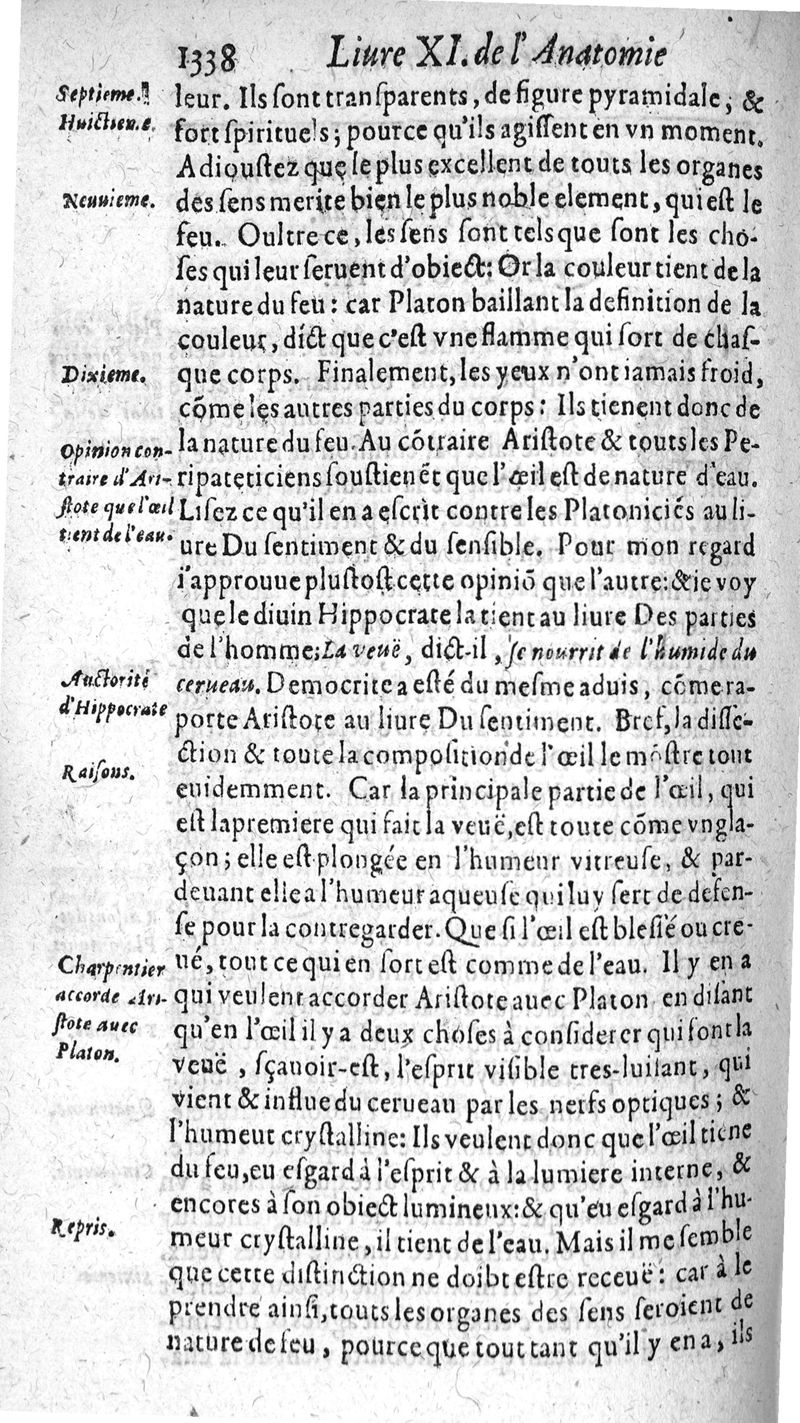 1338 Liure XI. de l'Anatomie
Septieme.
Huictien.e.
Neuuieme.
Dixieme.
Opinion con-
traire d'Ari-
ſtote que l'œil
tient de l'eau.
Auctorité
d'Hippocrate
Raiſons.
Charpentier
accorde Ari-
ſtote auec
Platon.
Repris.
leur. Ils ſont tranſparents, de figure pyramidale, &
fort ſpirituels; pource qu'ils agiſſent en vn moment.
Adiouſtez que le plus excellent de touts les organes
des ſens merite bien le plus noble element, qui eſt le
feu. Oultre ce, les ſens ſont tels que ſont les cho-
ſes qui leur ſeruent d'obiect: Or la couleur tient de la
nature du feu: car Platon baillant la definition de la
couleur, dict que c'eſt vne flamme qui ſort de chaſ-
que corps. Finalement, les yeux n'ont iamais froid,
cõme les autres parties du corps: Ils tienent donc de
la nature du feu. Au cõtraire Ariſtote & touts les Pe-
ripateticiens ſouſtienẽt que l'œil eſt de nature d'eau.
Liſez ce qu'il en a eſcrit contre les Platoniciẽs au li-
ure Du ſentiment & du ſenſible. Pour mon regard
i'approuue pluſtoſt cette opiniõ que l'autre: & ie voy
que le diuin Hippocrate la tient au liure Des parties
de l'homme; La veuë, dict-il, ſe nourrit de l'humide du
cerueau. Democrite a eſté du meſme aduis, cõme ra-
porte Ariſtote au liure Du ſentiment. Bref, la diſſe-
ction & toute la compoſition de l'œil le mõſtre tout
euidemment. Car la principale partie de l'œil, qui
eſt la premiere qui fait la veuë, eſt toute cõme vn gla-
çon; elle eſt plongée en l'humeur vitreuſe, & par-
deuant elle a l'humeur aqueuſe qui luy ſert de defen-
ſe pour la contregarder. Que ſi l'œil eſt bleſſé ou cre-
ué, tout ce qui en ſort eſt comme de l'eau. Il y en a
qui veulent accorder Ariſtote auec Platon en diſant
qu'en l'œil il y a deux choſes à conſiderer qui font la
veuë, ſçauoir-eſt, l'eſprit viſible tres-luiſant, qui
vient & influe du cerueau par les nerfs optiques; &
l'humeur cryſtalline: Ils veulent donc que l'œil tiene
du feu, eu eſgard à l'eſprit & à la lumiere interne, &
encores à ſon obiect lumineux: & qu'eu eſgard à l'hu-
meur cryſtalline, il tient de l'eau. Mais il me ſemble
que cette diſtinction ne doibt eſtre receuë: car à le
prendre ainſi, touts les organes des ſens ſeroient de
nature de feu, pource que tout tant qu'il y en a, ils